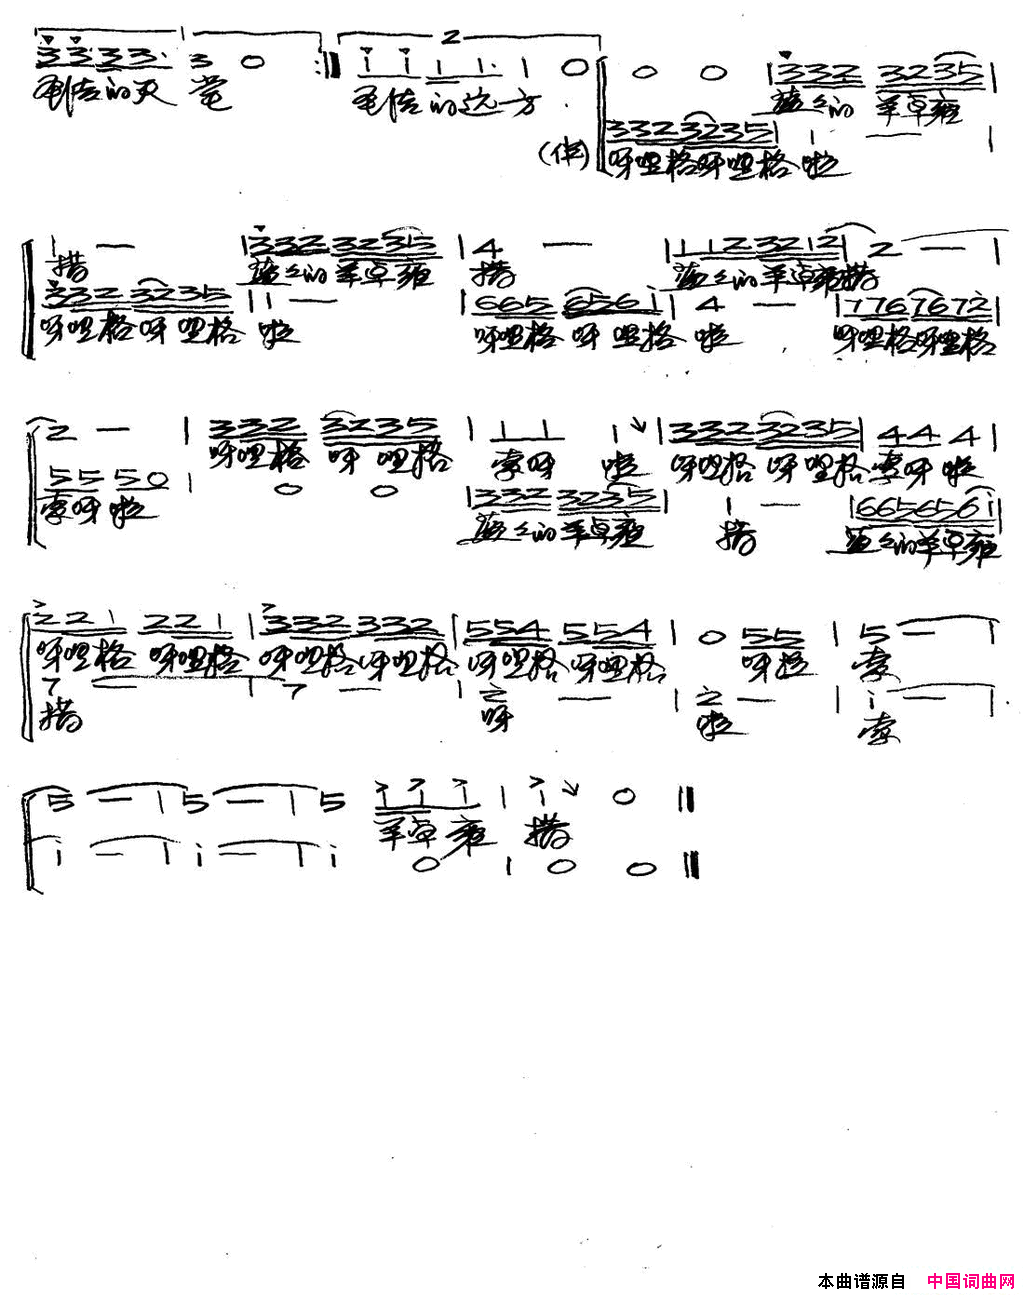 2
3 3 3 3 3 3 · 3 0 :‖ i i 1 1 · 1 0 0 0 | 3 3 2 3 2 3 5 |
的天堂 的远方 蓝蓝的羊卓雍
(伴) 3 3 2 3 2 3 5 | 1 — |
呀哩格呀哩格啦
1 — | 3 3 2 3 2 3 5 | 4 — | 1 1 2 3 2 1 2 | 2 — |
措 蓝蓝的羊卓雍 措 蓝蓝的羊卓雍措
3 3 2 3 2 3 5 | 1 — | 6 6 5 6 5 6 i | 4 — | 7 7 6 7 6 7 2 |
呀哩格呀哩格 啦 呀哩格呀哩格 啦 呀哩格呀哩格
2 — | 3 3 2 3 2 3 5 | 1 1 1 | 3 3 2 3 2 3 5 | 4 4 4 |
呀哩格 呀哩格 索呀 啦 呀哩格呀哩格索呀啦
5 5 5 0 | 0 0 | 3 3 2 3 2 3 5 | 1 — | 6 6 5 6 5 6 i |
索呀啦 蓝蓝的羊卓雍 措 蓝蓝的羊卓雍
2 2 1 2 2 1 | 3 3 2 3 3 2 | 5 5 4 5 5 4 | 0 5 5 | 5 — |
呀哩格 呀哩格 呀哩格呀哩格 呀哩格呀哩格 呀啦 索
7 — | 7 — | 2 — | 2 — | i — |
措 呀 啦 索
5 — | 5 — | 5 i i i | i 0 ‖
羊卓雍 措
i — | i — | i 0 | 0 0 ‖
本曲谱源自 中国词曲网